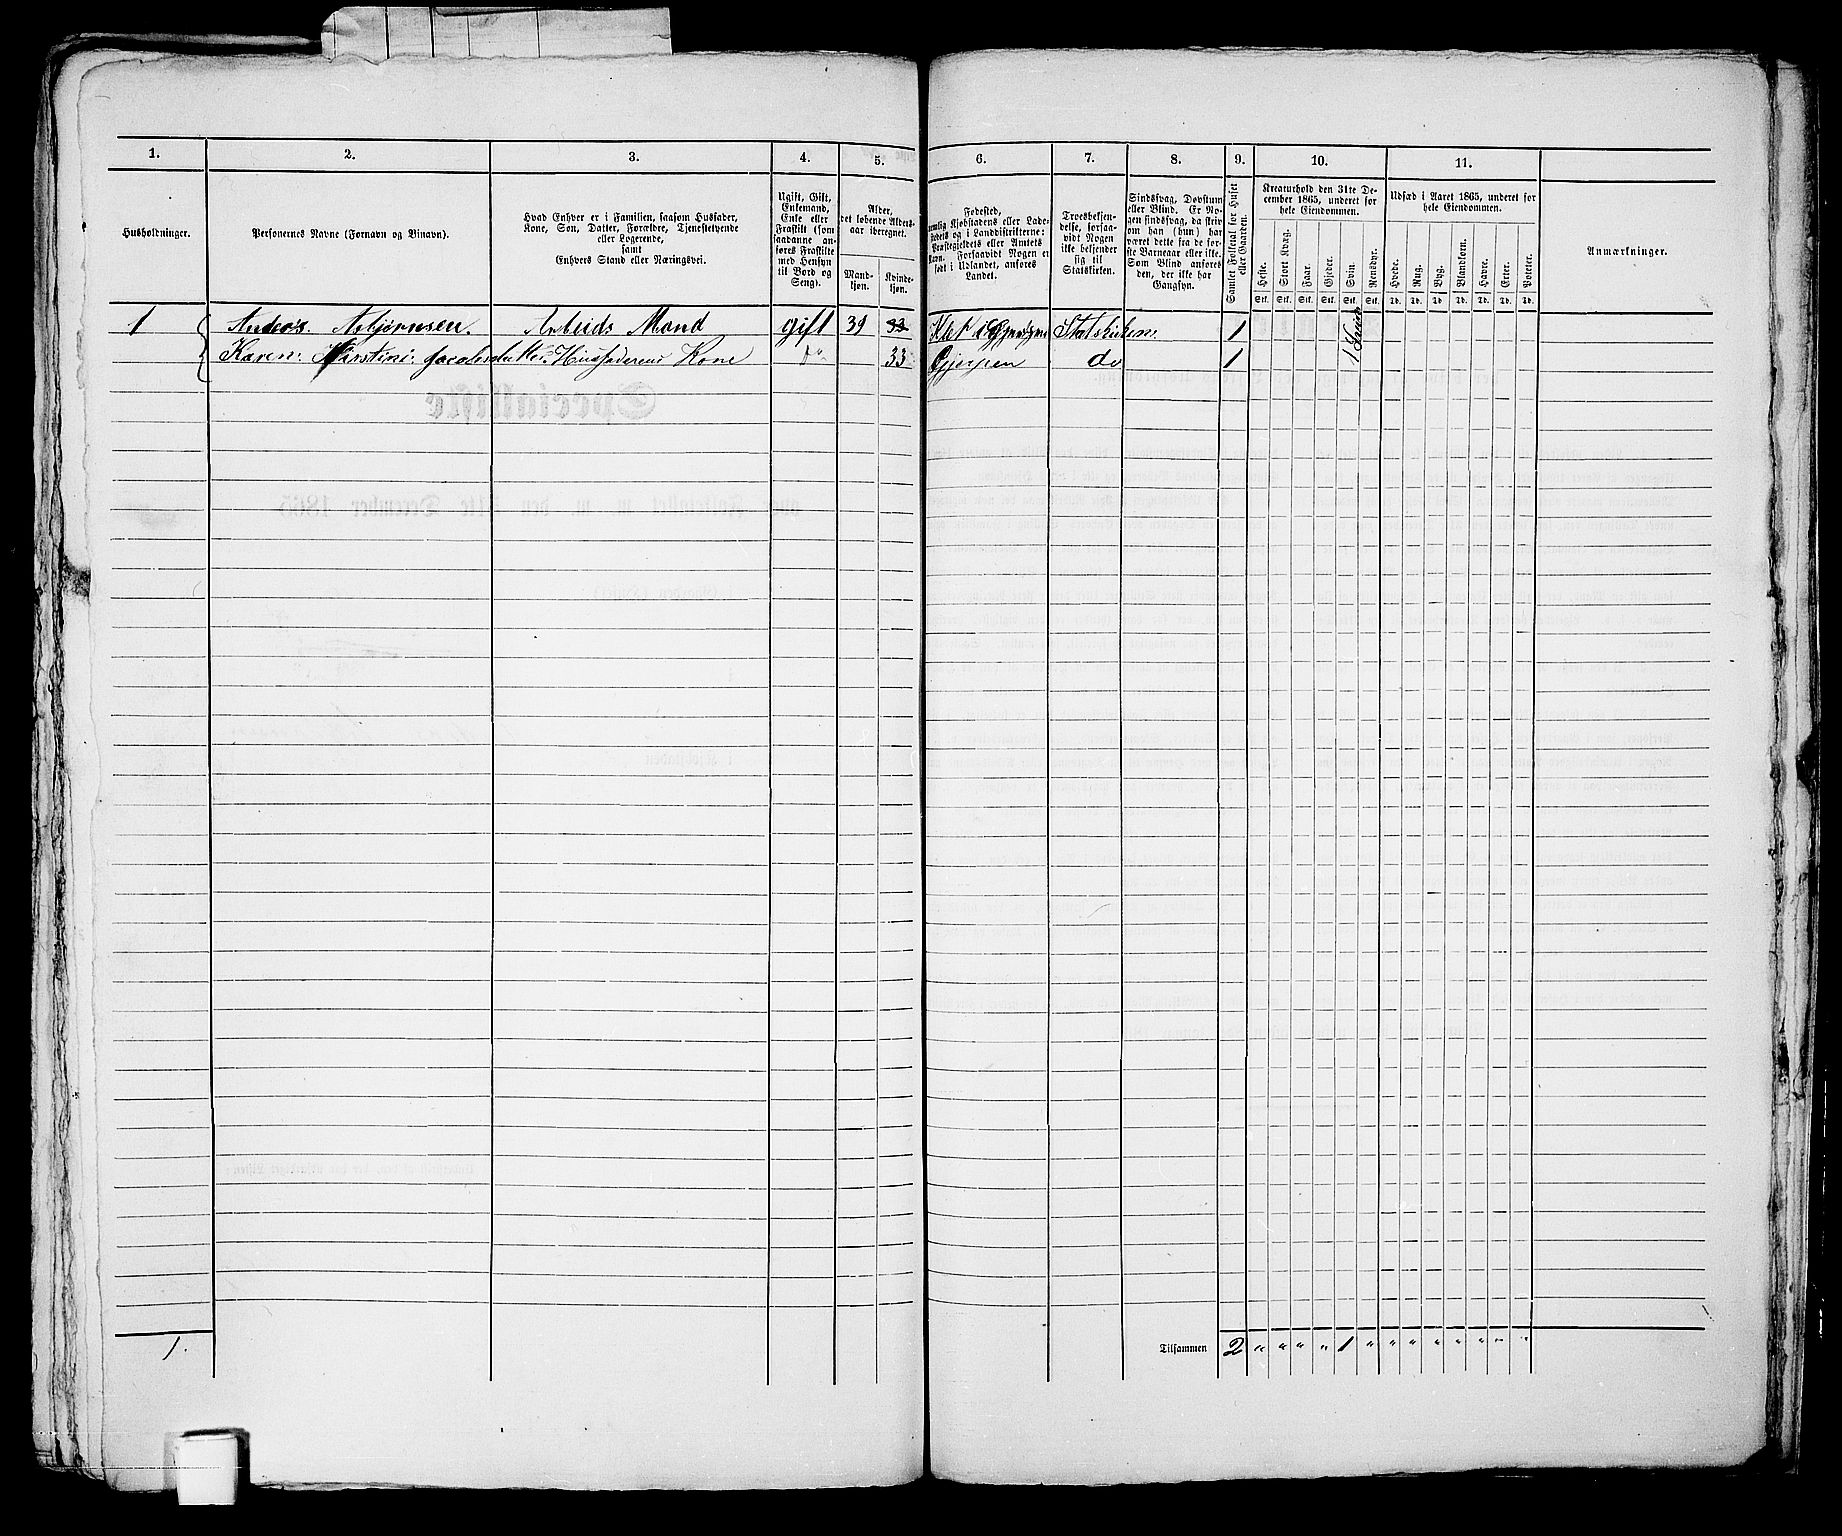 1. 2. 3. 4. 5. 6. 7. 8. 9. 10. 11.
Husholdninger.
Personernes Navne (Fornavn og Tilnavn).
Hvad Enhver er i Familien, saasom Husfader,
Kone, Søn, Datter, Forældre, Tjenestetyende
eller Logerende,
samt
Enhvers Stand eller Næringsvei.
Ugift, Gift,
Enkemand,
Enke eller
Fraskilt (som
saadanne an-
føres Fraskilte
med Hensyn
til Bord og
Seng).
Alder,
det løbende Alders-
aar iberegnet.
Mand-
kjøn.
Kvinde-
kjøn.
Fødested,
nemlig Kjøbstadens eller Lade-
stedets og i Landdistrikterne:
Præstegjeldets eller Amtets
Navn. Forsaavidt Nogen er
født i Udlandet, anføres
Landet.
Troesbekjen-
delse, forsaa-
vidt Nogen
ikke bekjender
sig til
Statskirken.
Sindssvag, Døvstum
eller Blind. Er No-
gen sindssvag, da skriv
om han (hun) har
været dette fra de før-
ste Barneaar eller ikke.
Som Blind anføres
den, der ikke har
Gangsyn.
Samlet Folketal for Huset
eller Gaarden.
Kreaturhold den 31te De-
cember 1865, underet for
hele Eiendommen.
Heste. Stort Kvæg. Faar. Gjeder. Svin. Rensdyr.
Stk. Stk. Stk. Stk. Stk. Stk.
Udsæd i Aaret 1865, underet for
hele Eiendommen.
Hvede. Rug. Byg. Blandkorn. Havre. Erter. Poteter.
Td. Td. Td. Td. Td. Td. Td.
Anmærkninger.
1 Anders. Asbjørnsen. Arbeids Mand gift 39 33 Statskirken. 1 1
Karen. Kirstine. Jacobsdatter. Husfaderens Kone do 33 Gjerpen do 1
1. Tilsammen 2 " " " " 1 " " " " " " " "